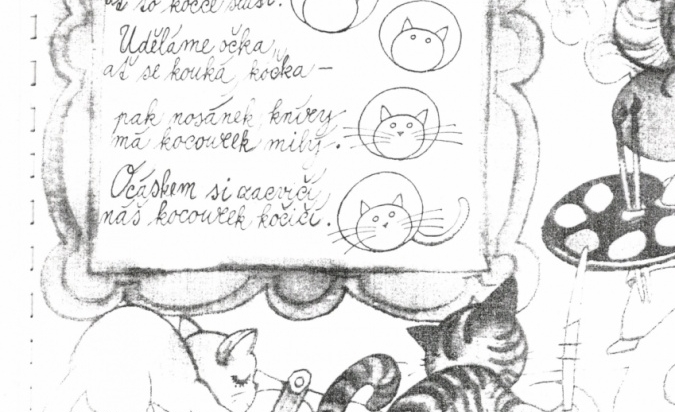 ať to kočce sluší.
Uděláme očka,
ať se kouká kočka –
pak nosánek, kníry
má kocourek milý.
Ocáskem si zacvičí
náš kocourek kočičí.